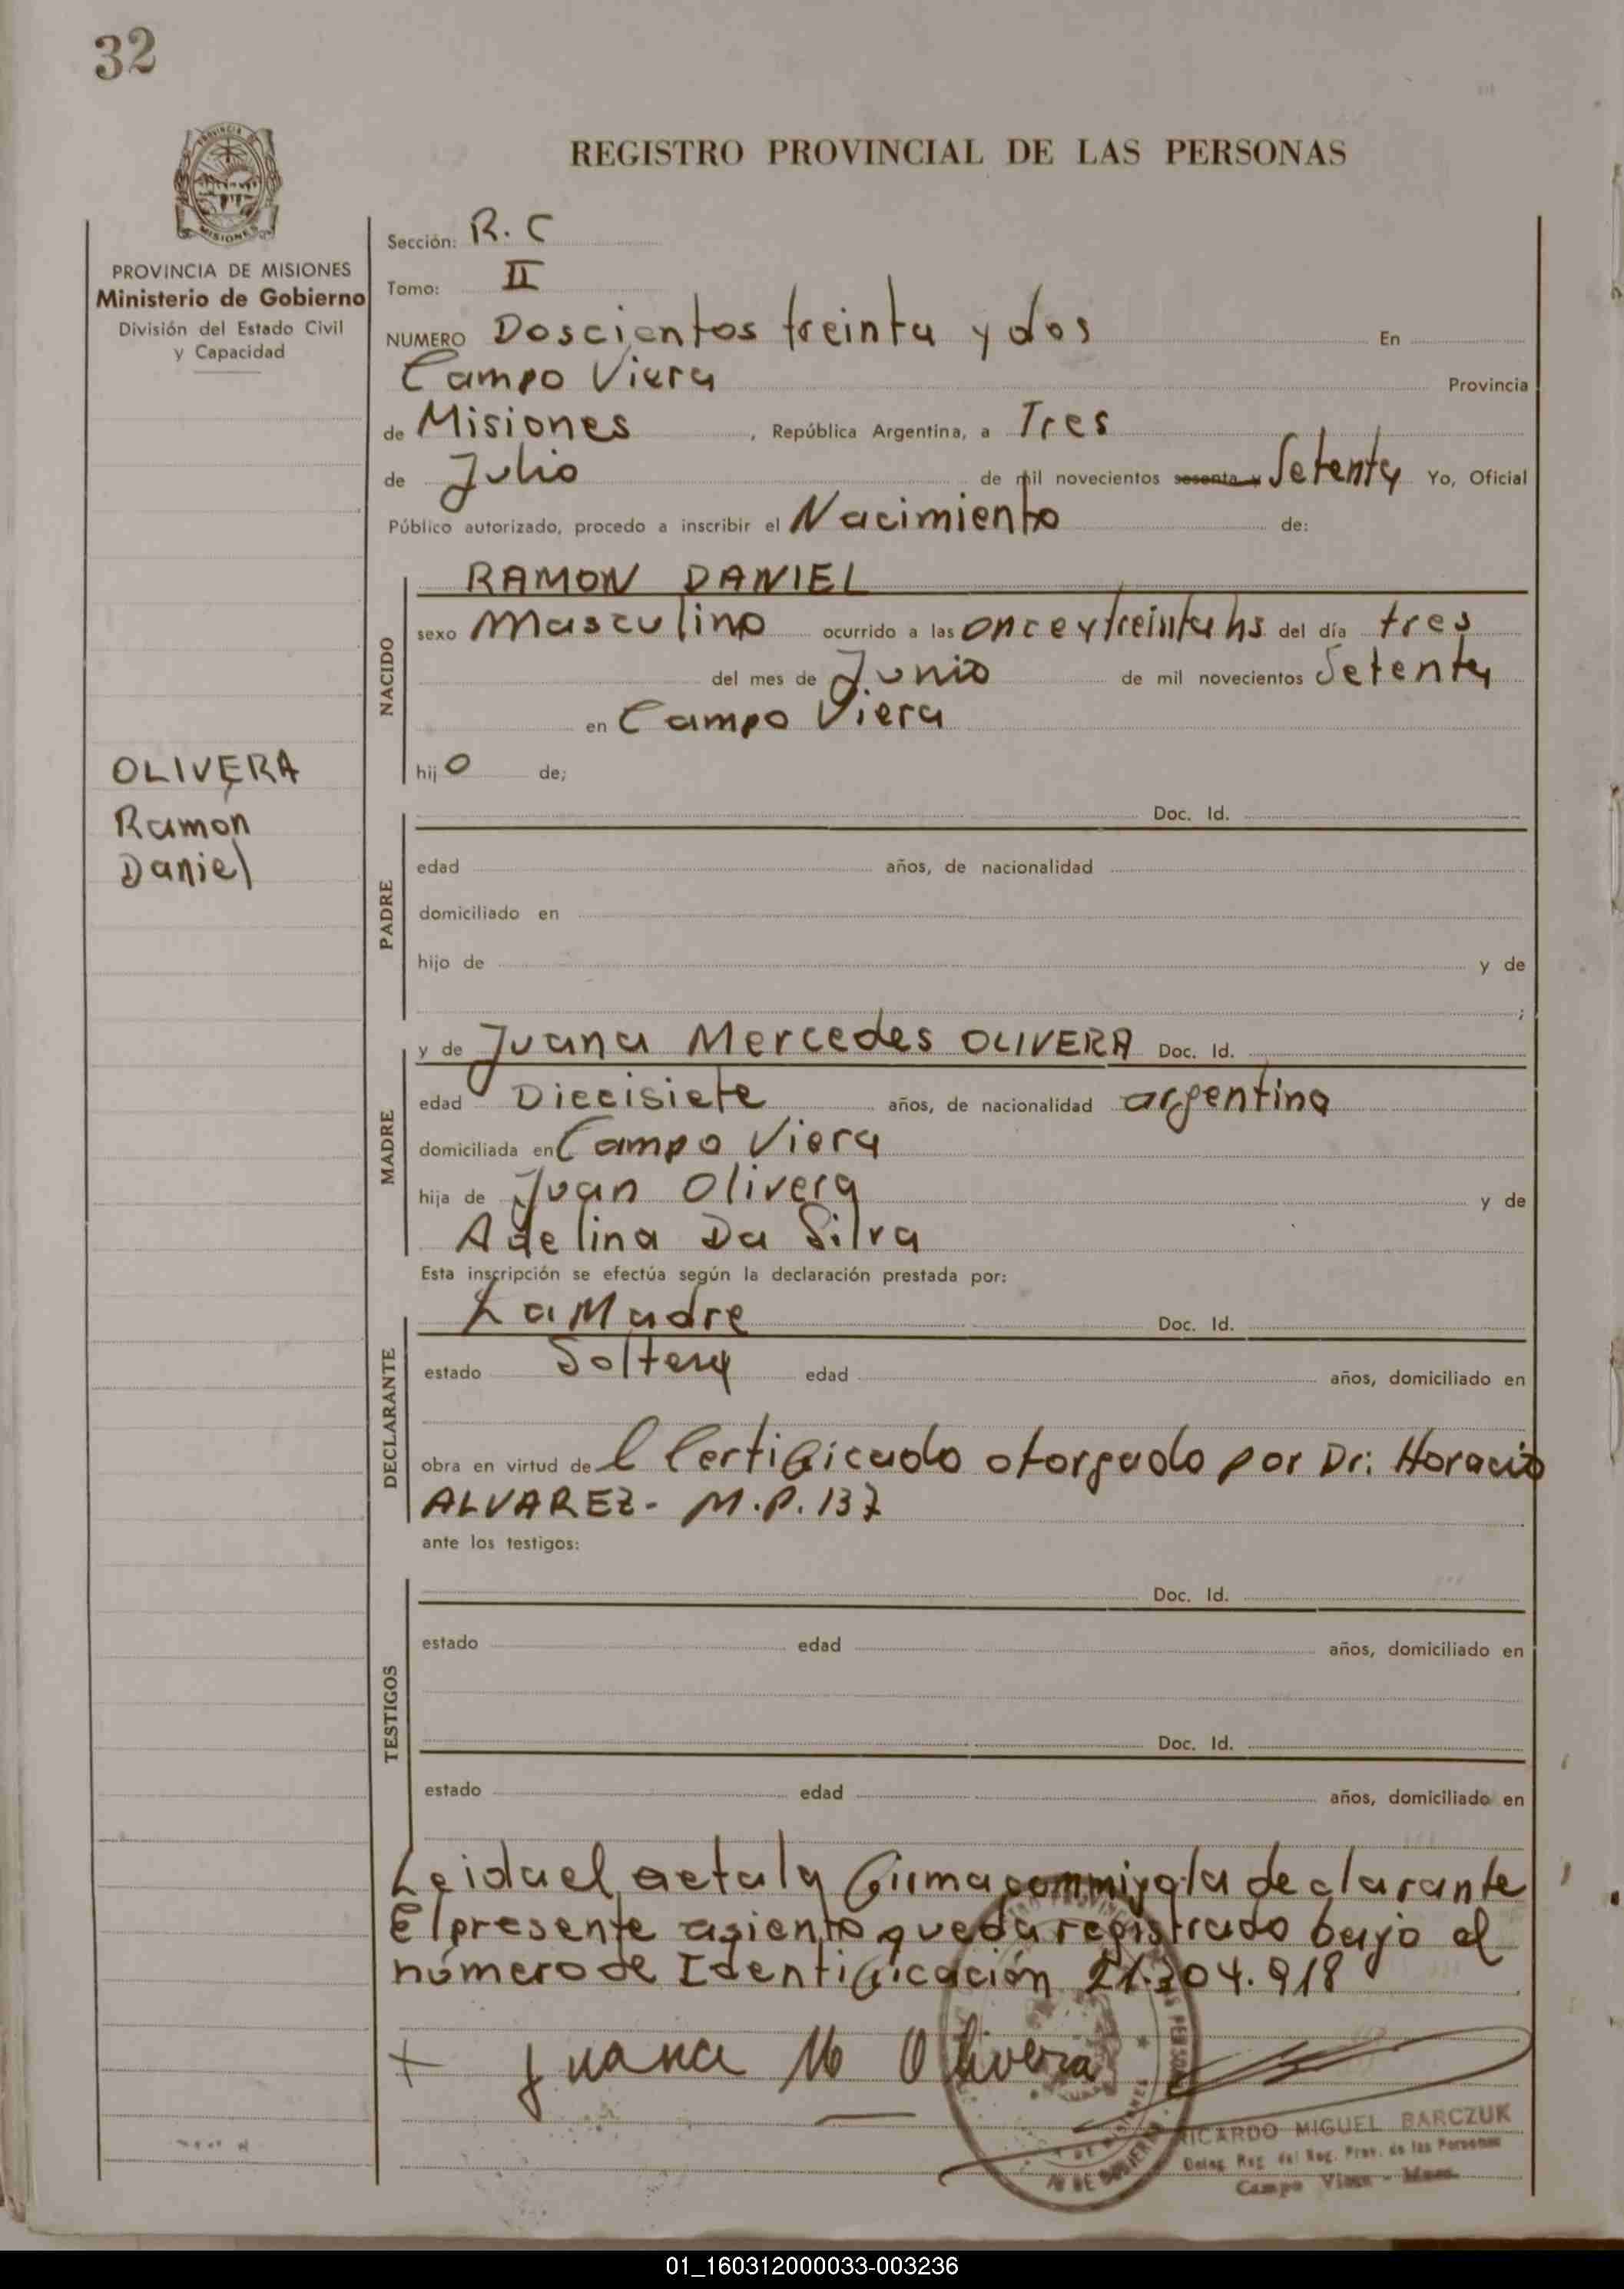 32
REGISTRO PROVINCIAL DE LAS PERSONAS
PROVINCIA DE MISIONES
Ministerio de Gobierno
División del Estado Civil
y Capacidad
Sección: R. C
Tomo: II
NUMERO Doscientos treinta y dos En
Campo Viera Provincia
de Misiones, República Argentina, a Tres
de Julio de mil novecientos sesenta y Setenta Yo, Oficial
Público autorizado, procedo a inscribir el Nacimiento de:
NACIDO
RAMON DANIEL
sexo Masculino ocurrido a las once y treinta hs del día tres
del mes de Junio de mil novecientos Setenta
en Campo Viera
hijo de;
OLIVERA
Ramon
Daniel
PADRE
Doc. Id.
edad años, de nacionalidad
domiciliado en
hijo de y de
;
MADRE
y de Juana Mercedes OLIVERA Doc. Id.
edad Diecisiete años, de nacionalidad argentina
domiciliada en Campo Viera
hija de Juan Olivera y de
Adelina Da Silva
Esta inscripción se efectúa según la declaración prestada por:
DECLARANTE
La Madre Doc. Id.
estado Soltera edad años, domiciliado en
obra en virtud del Certificado otorgado por Dr: Horacio
ALVAREZ- M.P. 137
ante los testigos:
TESTIGOS
Doc. Id.
estado edad años, domiciliado en
Doc. Id.
estado edad años, domiciliado en
Leida el acta la firma conmigo la declarante
El presente asiento queda registrado bajo el
número de Identificación 21.304.918
Juana M Olivera
RICARDO MIGUEL BARCZUK
Deleg. Reg. del Reg. Prov. de las Personas
Campo Viera - Mnes.
01_160312000033-003236